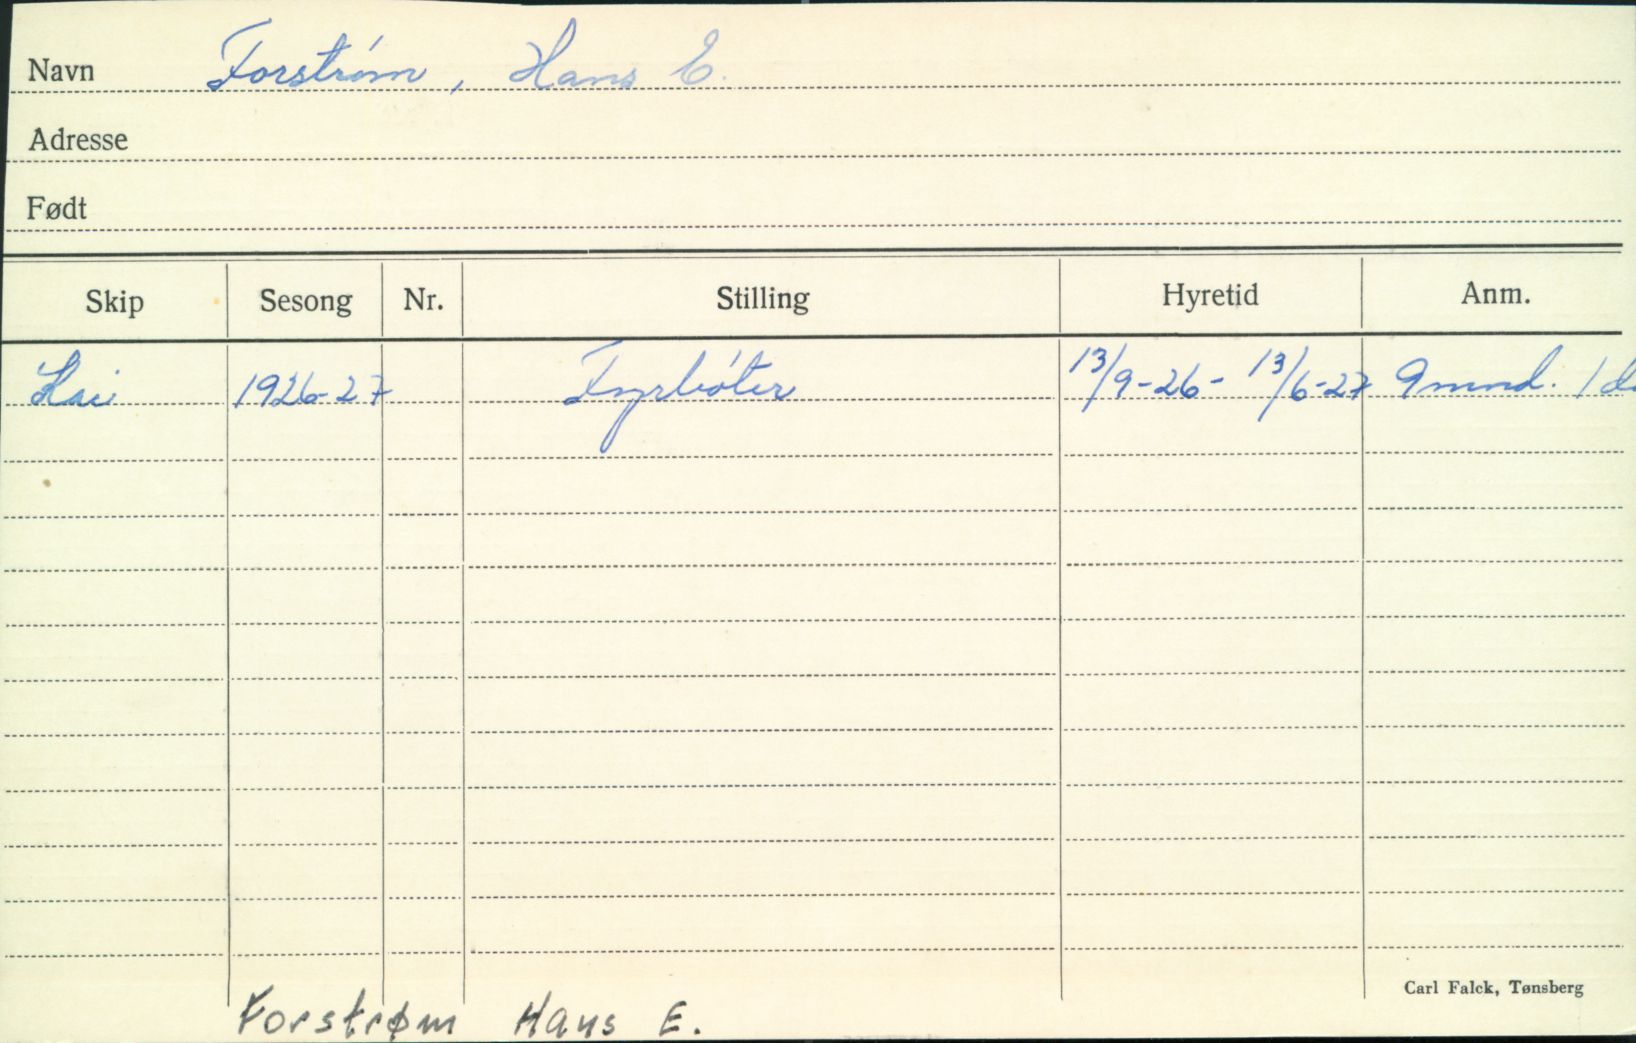 Navn Forstrøm, Hans E.
Adresse
Født
Skip Sesong Nr. Stilling Hyretid Anm.
Hai 1926-27 Fyrbøter 13/9-26 - 13/6-27 9 mnd. 1
Carl Falck, Tønsberg
Forstrøm Hans E.